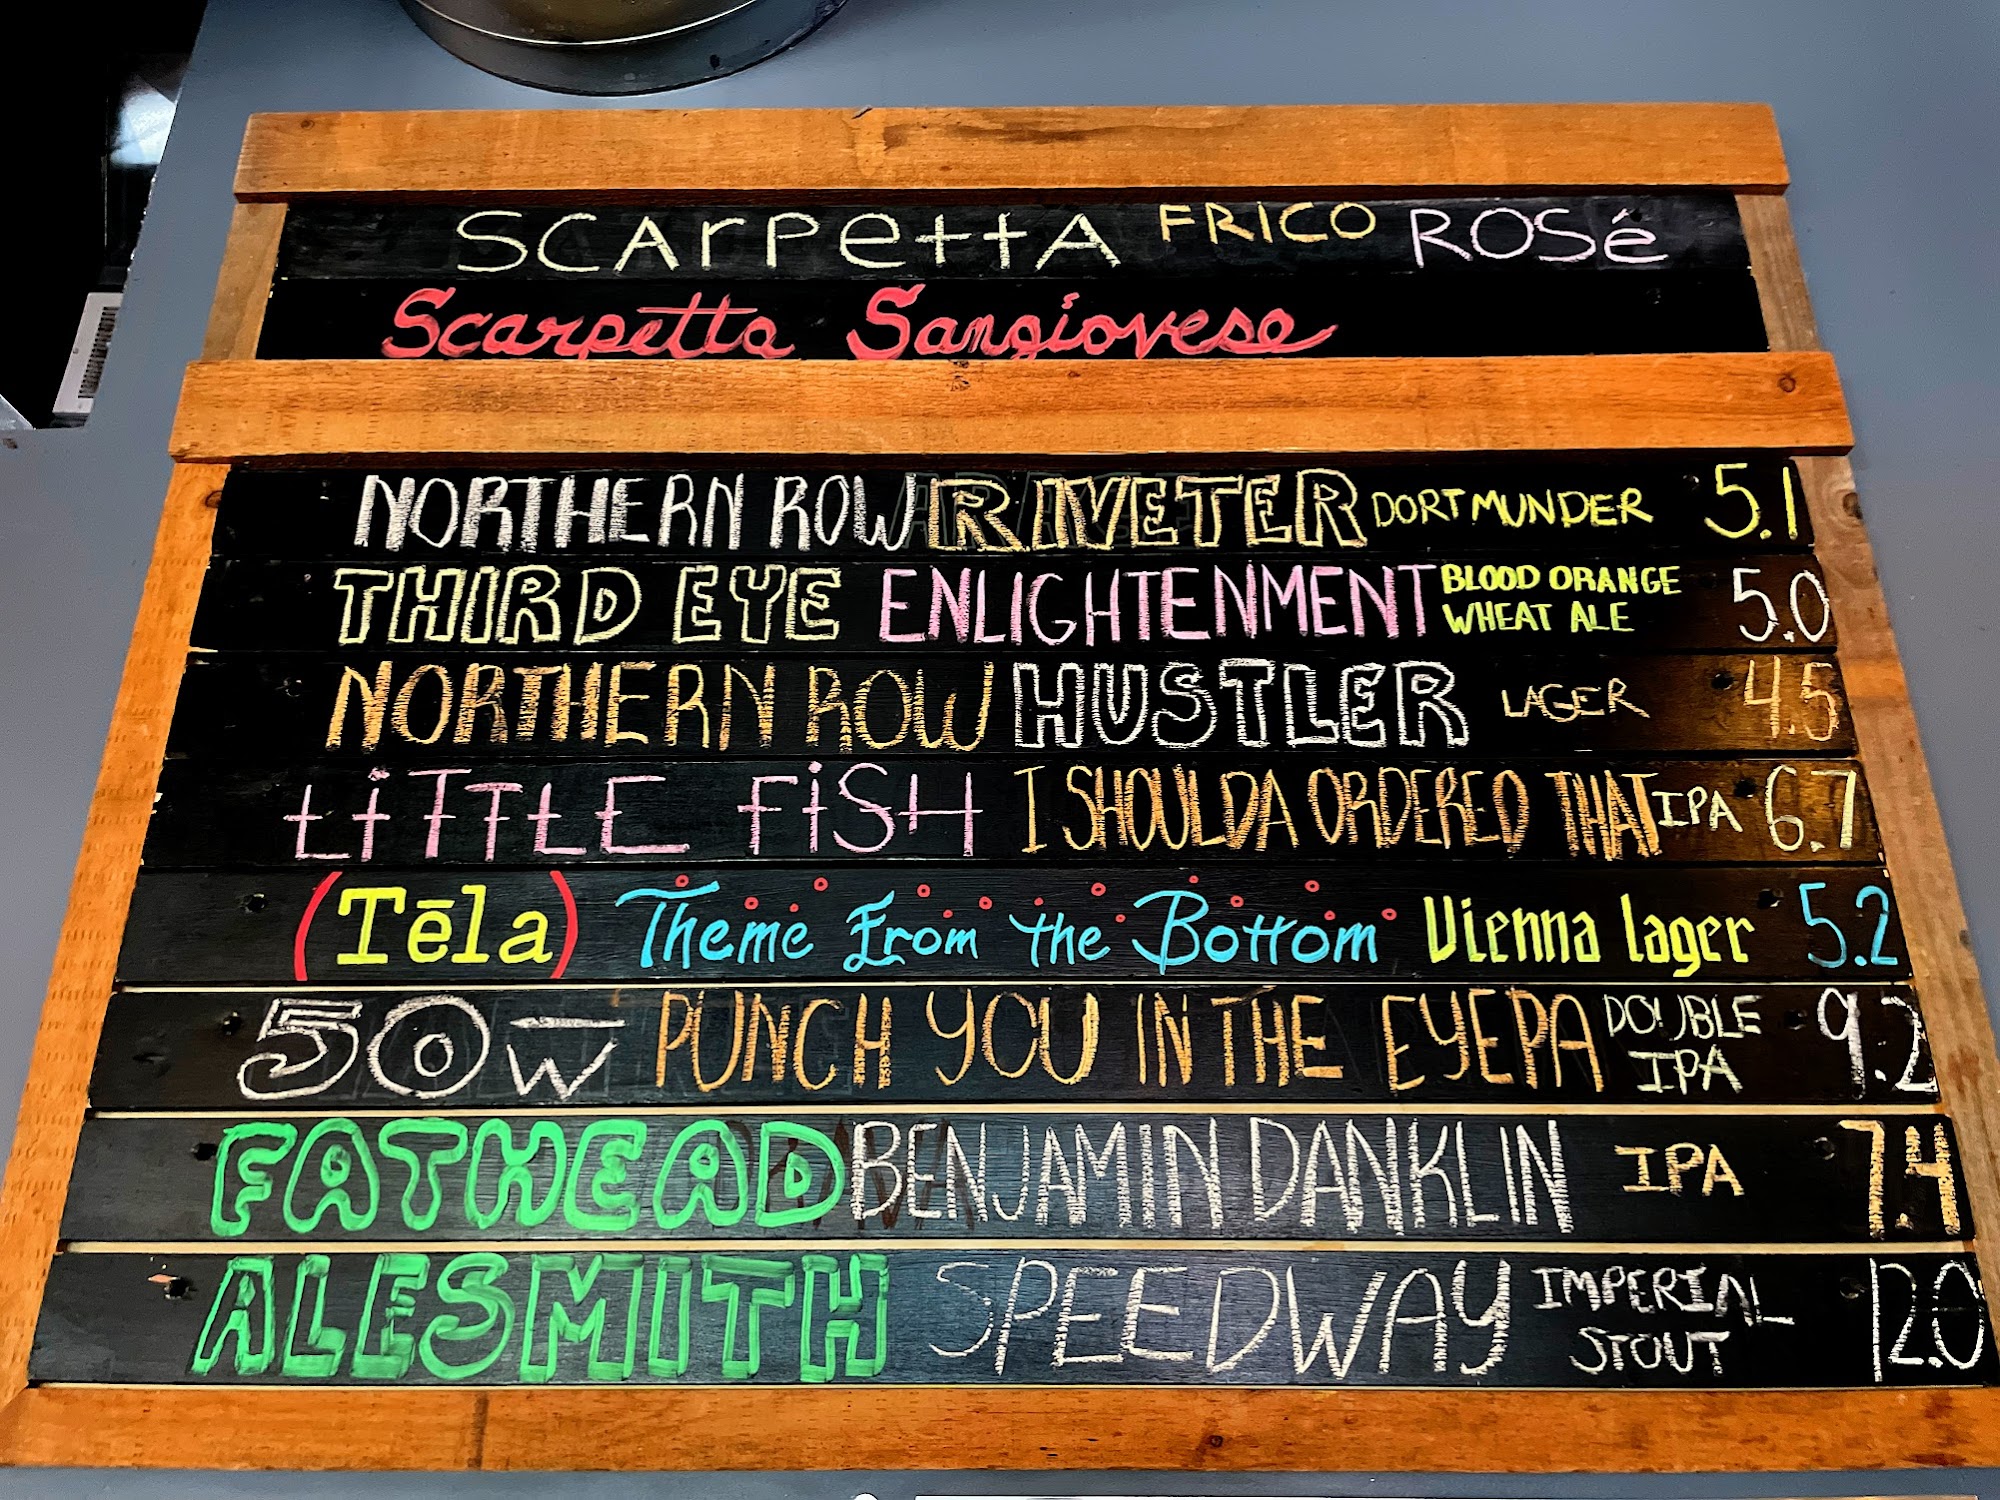 SCArPettA FRICO ROSé
Scarpetta Sangiovese
NORTHERN ROW RIVETER DORTMUNDER 5.1
THIRD EYE ENLIGHTENMENT BLOOD ORANGE WHEAT ALE 5.0
NORTHERN ROW HUSTLER LAGER 4.5
LiTTLE FiSH I SHOULDA ORDERED THAT IPA 6.7
(Tēla) Theme From the Bottom Vienna lager 5.2
50W PUNCH YOU IN THE EYEPA DOUBLE IPA 9.2
FATHEAD BENJAMIN DANKLIN IPA 7.4
ALESMITH SPEEDWAY IMPERIAL STOUT 12.0